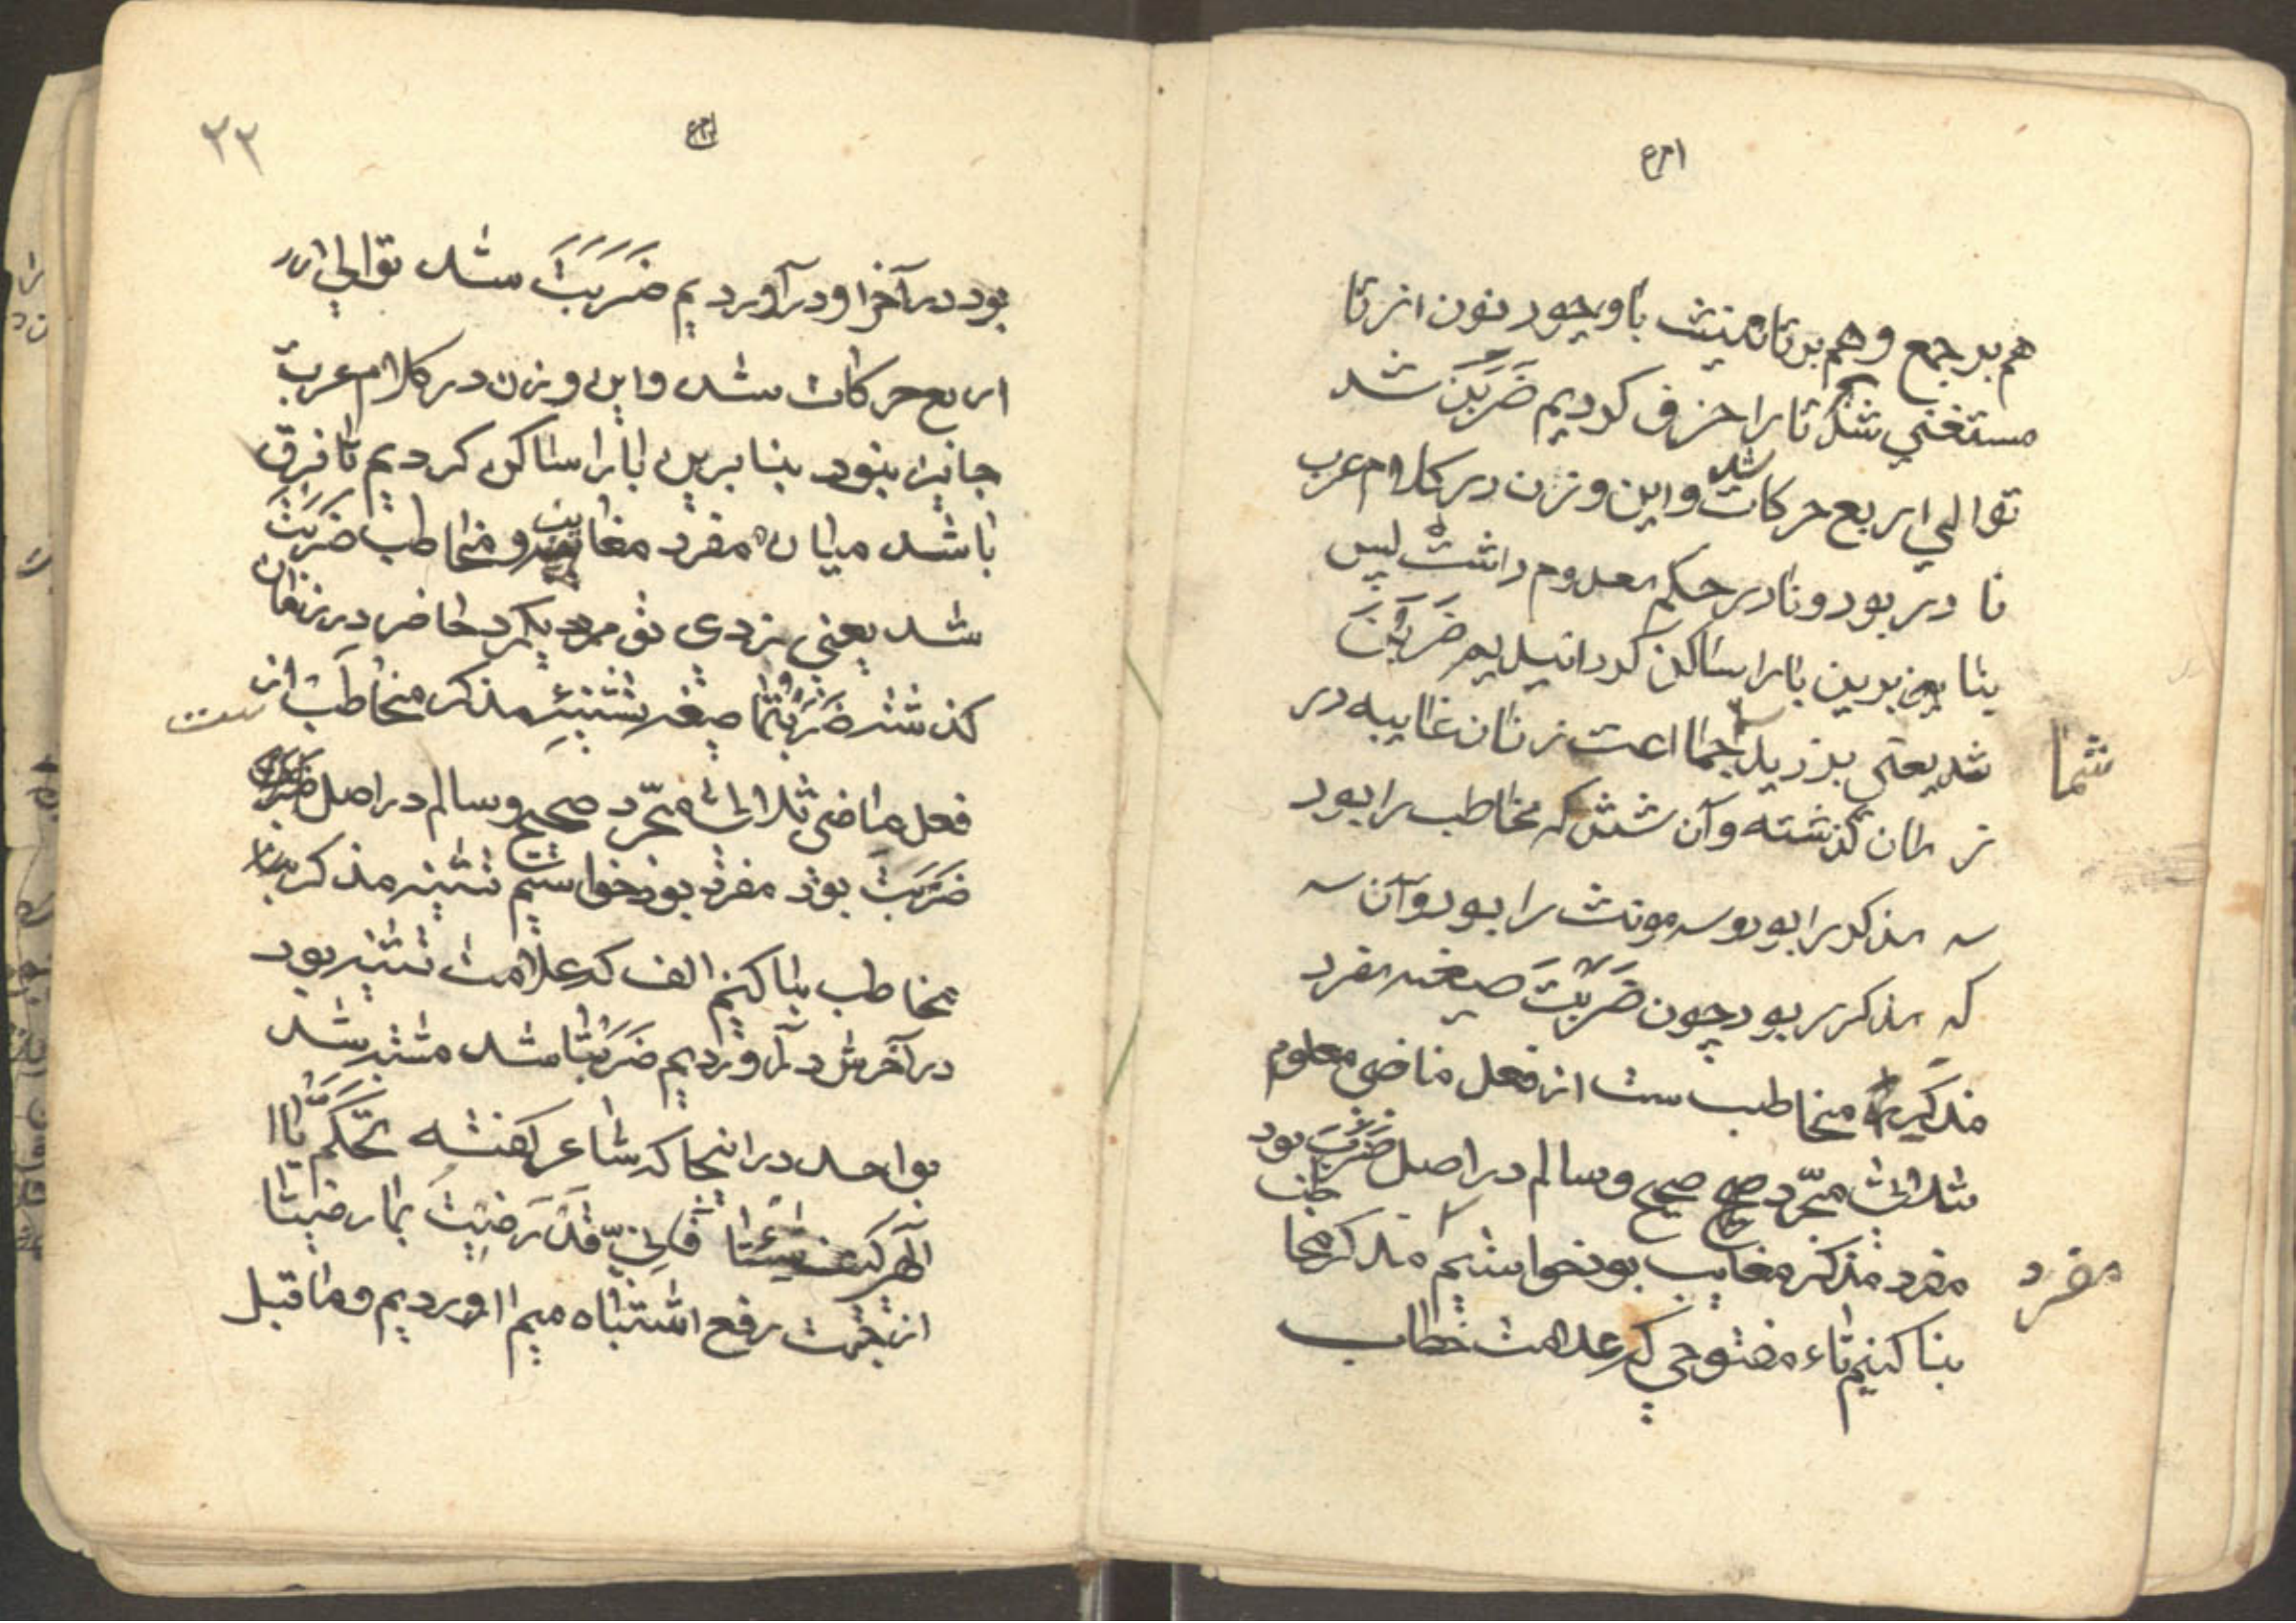 هم بر جمع و هم بر تانیث با وجود نون از تا
مستغنی شدند تا را حزف کردیم ضَرَبَنَ شد
توالی اربع حرکات شد و این وزن در کلام عرب
نا در بود و نادر حکم معدوم داشت لپس
بنا برین با را ساکن کردانیدیم ضَرَبْنَ
شد یعنی بزدید جمااعت زنان غاایبه در
شما
زمان گذشته و آن شش که مخاطب را بود
سه مذکر را بود و سه مونث را بود و آن سه
که مذکر را بود چون ضَرَبْتَ صیغه مفرد
مذکر مخاطب ست از فعل ماضی معلوم
ثلاثی مجّرد صحیح و سالم در اصل ضَرَبَ بود
مفرد مذکر مغایب بود خواستیم مذکر مخا طب
مفرد
بنا کنیم تاء مفتوحی که علامت خطاب
۲۲
بود در آخر او در آوردیم ضَرَبَتَ شد توالی ار
اربع حرکات شد و این وزن در کلام عرب
جایز نبود بنا برین با را ساکن کردیم تا فرق
باشد میان مفرد مغایب و مخاطب ضَرَبْتَ
شد یعنی بزدی تو مرد یکمرد حاضر در زمان
کذشته ضَرَبْتُمَا صیغه تثنیه مذکر مخاطب از ست
فعل ماضی ثلاثی مجّرد صحیح و سالم در اصل
ضَرَبْتَ بود مفرد بود خواستیم تثنیه مذکر
مخاطب بنا کنیم الف که علامت تثنیه بود
در آخرش در آوردیم ضَرَبْتَا شد مشتبه شد
بواحد در انجا که شاعر کفته تَحَكَّمْ يَاا
الهی کیف شئتا فانّی قد رَضیتُ بما رضیتا
از بجهت رفع اشتباه میم ااوردیم و ما قبل